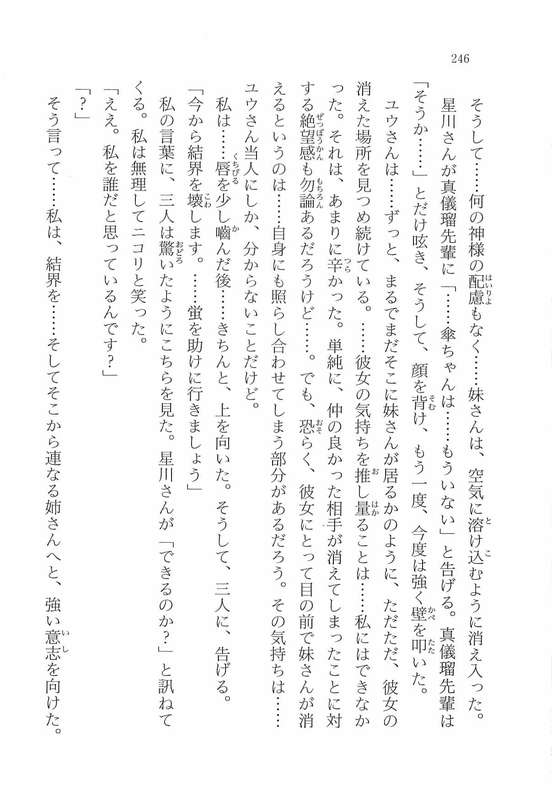 246
そうして……何の神様の配慮もなく……妹さんは、空気に溶け込むように消え入った。
星川さんが真儀瑠先輩に「……傘ちゃんは……もういない」と告げる。真儀瑠先輩は
「そうか……」とだけ呟き、そうして、顔を背け、もう一度、今度は強く壁を叩いた。
ユウさんは……ずっと、まるでまだそこに妹さんが居るかのように、ただただ、彼女の
消えた場所を見つめ続けている。……彼女の気持ちを推し量ることは……私にはできなか
った。それは、あまりに辛かった。単純に、仲の良かった相手が消えてしまったことに対
する絶望感も勿論あるだろうけど……。でも、恐らく、彼女にとって目の前で妹さんが消
えるというのは……自身にも照らし合わせてしまう部分があるだろう。その気持ちは……
ユウさん当人にしか、分からないことだけど。
私は……唇を少し嚙んだ後……きちんと、上を向いた。そうして、三人に、告げる。
「今から結界を壊します。……蛍を助けに行きましょう」
私の言葉に、三人は驚いたようにこちらを見た。星川さんが「できるのか？」と訊ねて
くる。私は無理してニコリと笑った。
「ええ。私を誰だと思っているんです？」
「？」
そう言って……私は、結界を……そしてそこから連なる姉さんへと、強い意志を向けた。